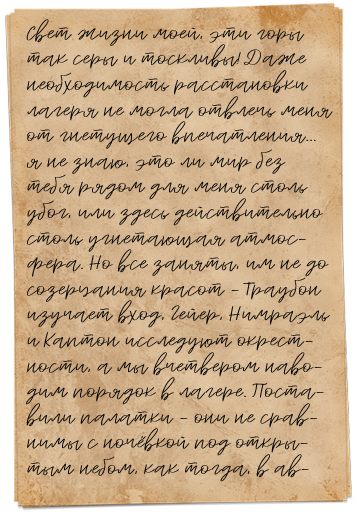 Свет жизни моей, эти горы
так серы и тоскливы! Даже
необходимость расстановки
лагеря не могла отвлечь меня
от гнетущего впечатления...
я не знаю, это ли мир без
тебя рядом для меня столь
убог, или здесь действительно
столь угнетающая атмос-
фера. Но все заняты, им не до
созерцания красот - Траубон
изучает вход, Гейер, Нимраэль
и Каптон исследуют окрест-
ности, а мы вчетвером наво-
дим порядок в лагере. Поста-
вили палатки - они не срав-
нимы с ночёвкой под откры-
тым небом, как тогда, в ав-